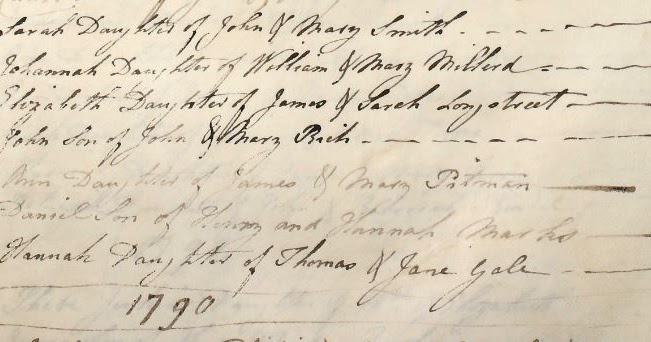 Sarah Daughter of John & Mary Smith
Johannah Daughter of William & Mary Millerd
Elizabeth Daughter of James & Sarah Longstreet
John Son of John & Mary Rich
Ann Daughter of James & Mary Pitman
Daniel Son of Henry and Hannah Marks
Hannah Daughter of Thomas & Jane Gale
1790